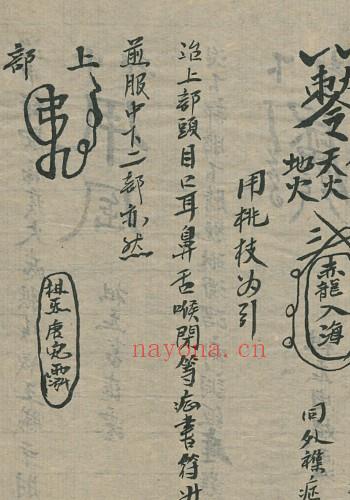 敕令
天火
地火
赤龍入海
同外襍症
用桃枝为引
治上部頭目口耳鼻舌喉閉等症書符
煎服中下二部亦然
上部
nayona.cn